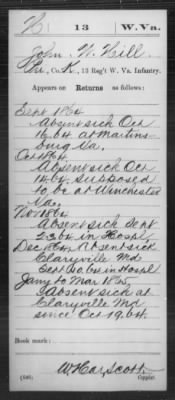 H | 13 | W.Va.
John W. Hill
Co. K, 13 Reg't W. Va. Infantry.
Appears on Returns as follows:
Sept 1864
Absent sick Oct
16.64 at Martins-
burg Va.
Oct 1864
Absent sick Oct
supposed
to be at Winchester
Va.
Nov 1864
Absent sick Sept
in Hospl
Dec 1864. Absent sick
Claryville Md
Sept in Hospl
Jany to Mar 1865
Absent sick at
Claryville Md
since Oct 19.64.
Book mark:
(546)
Copyist.